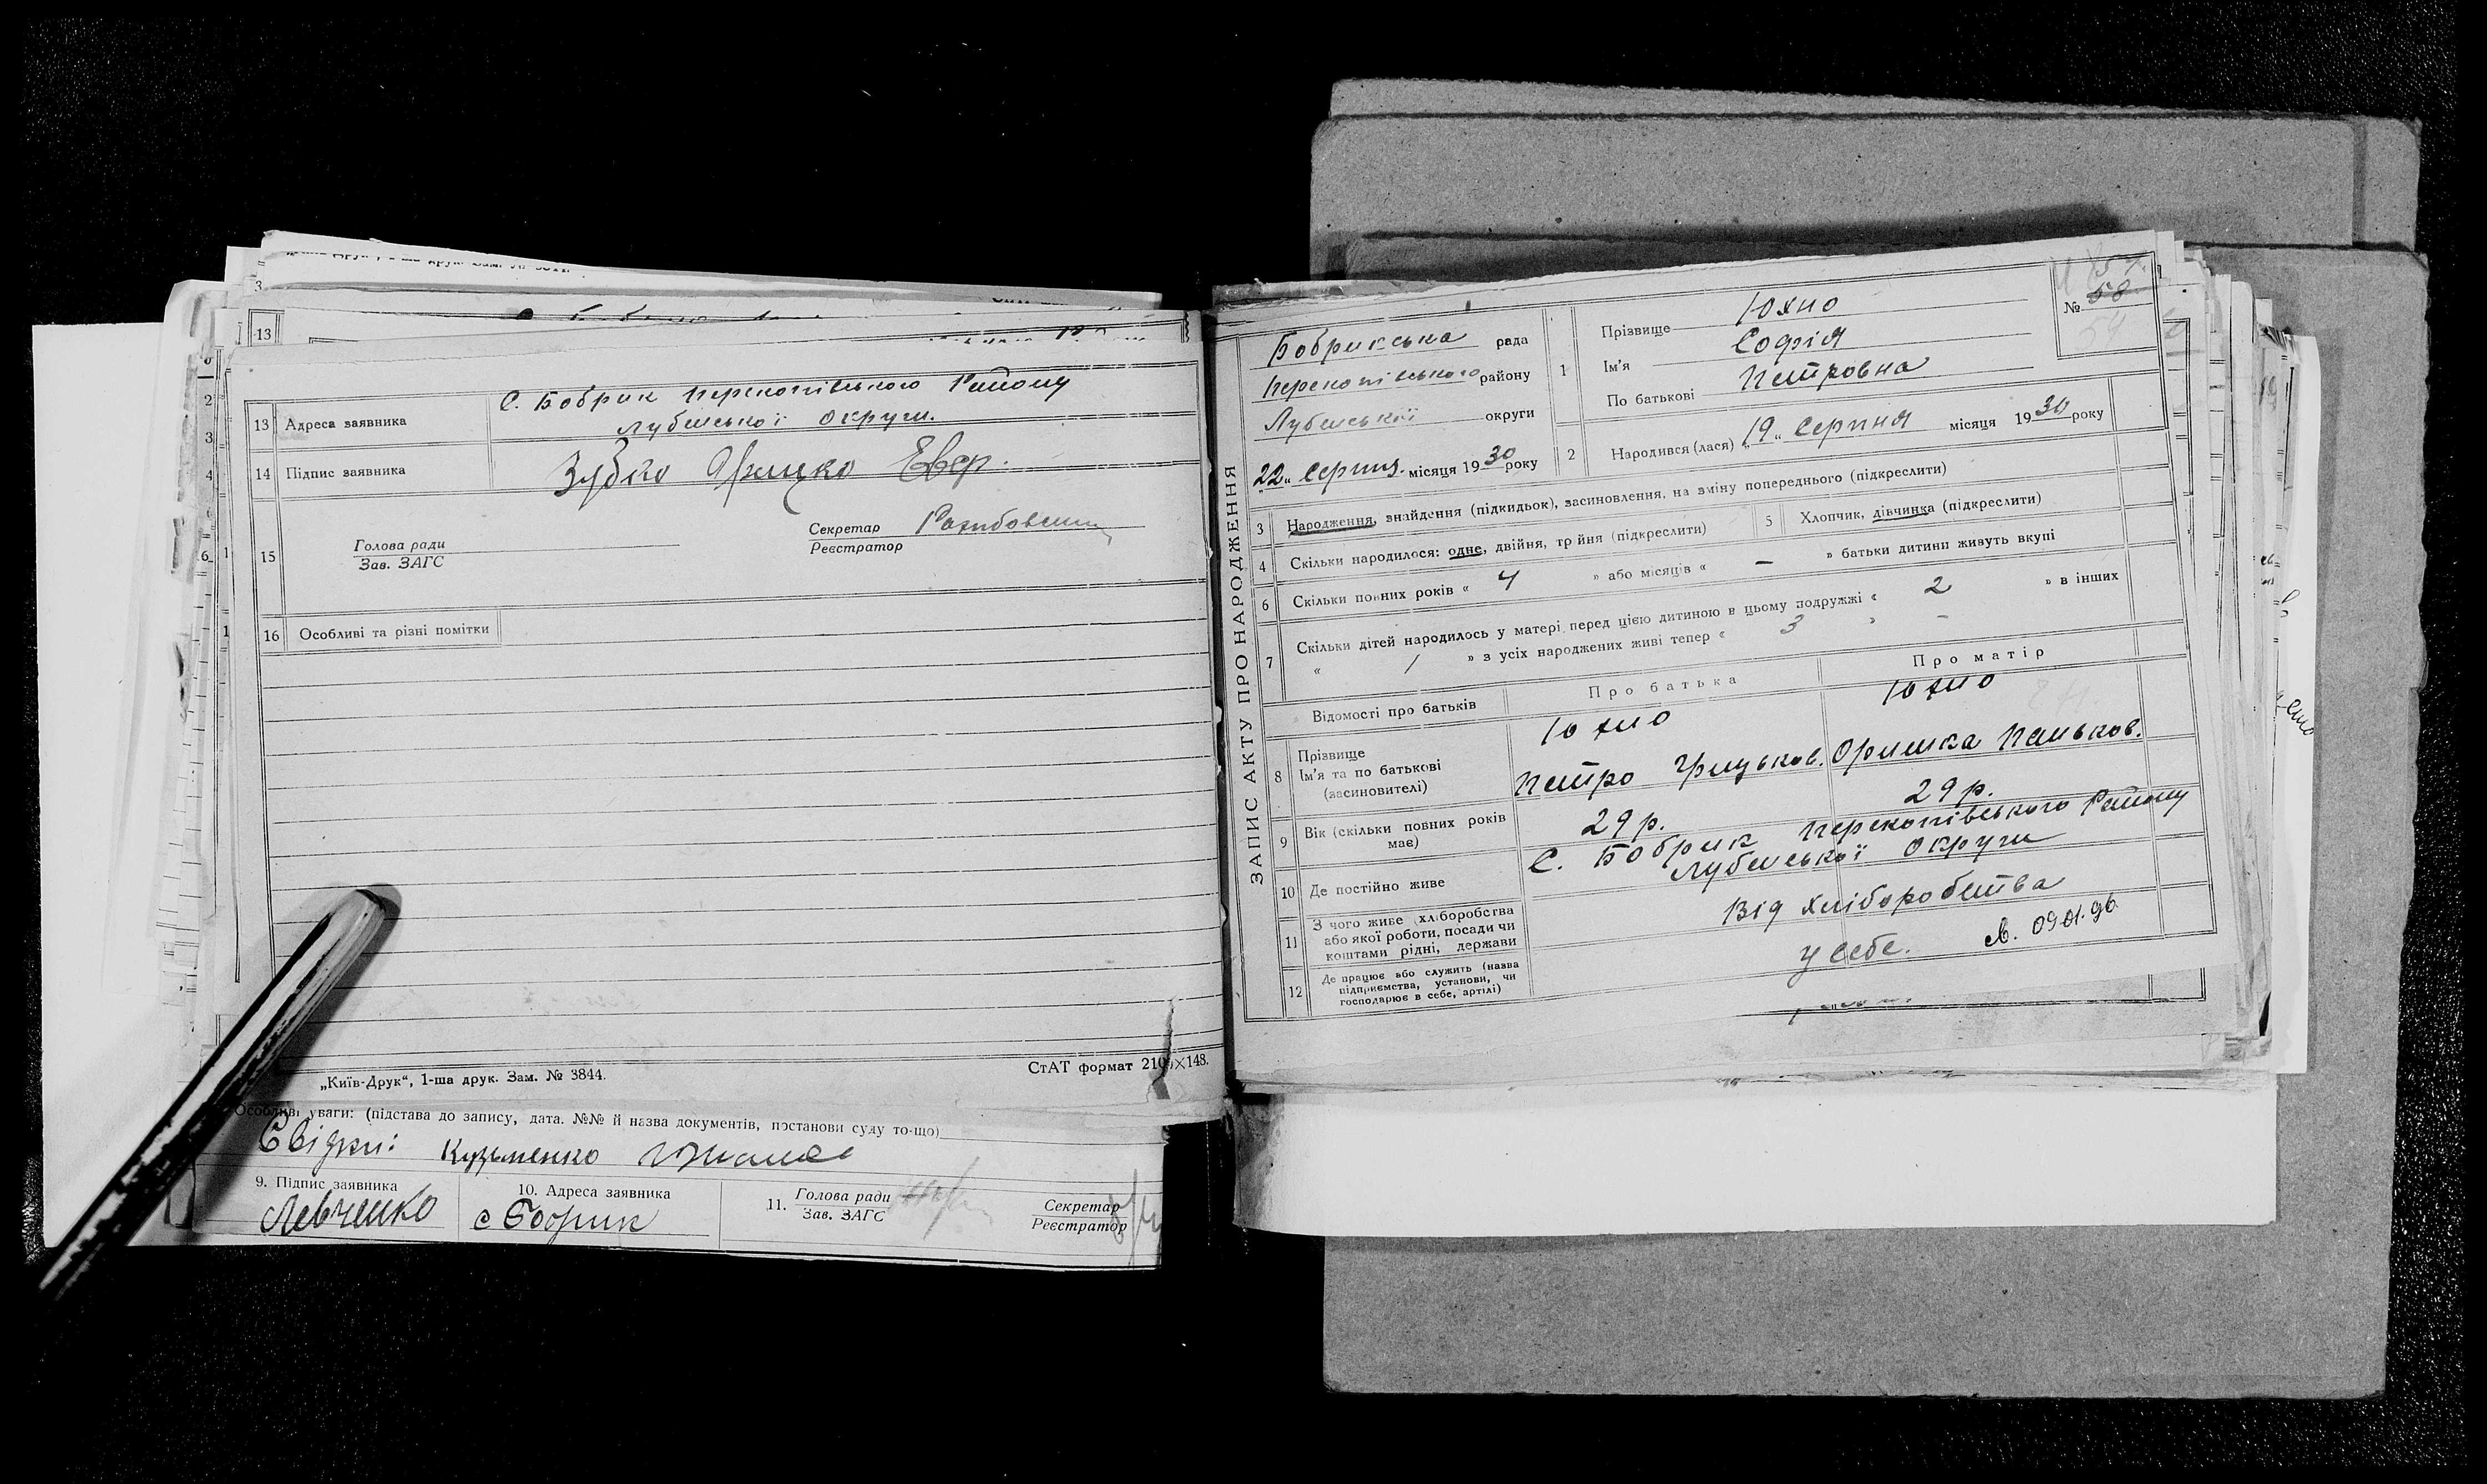 13 Адреса заявника С. Бобрик Перекопівського Району
Лубенської Округи.
14 Підпис заявника Зубко Грицко Евер.
15 Голова ради
Зав. ЗАГС
Секретар
Реєстратор
16 Особливі та різні помітки
„Київ-Друк“, 1-ша друк. Зам. № 3844.
СтАТ формат 210×148.
Особливі уваги: (підстава до запису, дата. №№ й назва документів, постанови суду то-що)
Свідки: Кузьменко
9. Підпис заявника
Левченко
10. Адреса заявника
с Бобрик
11. Голова ради
Зав. ЗАГС
Секретар
Реєстратор
ЗАПИС АКТУ ПРО НАРОДЖЕННЯ
Бобрикська рада
Перекопівського району
Лубенської округи
„22„ Серпня. місяця 1930 року
1 Прізвище Юхно
Ім'я Софія
По батькові Петровна
№ 58
2 Народився (лася) „19„ Серпня місяця 1930 року
3 Народження, знайдення (підкидьок), засиновлення, на зміну попереднього (підкреслити)
4 Скільки народилося: одне, двійня, трійня (підкреслити)
5 Хлопчик, дівчинка (підкреслити)
6 Скільки повних років « 4 » або місяців « – » батьки дитини живуть вкупі
7 Скільки дітей народилось у матері перед цією дитиною в цьому подружжі « 2 » в інших
« 1 » з усіх народжених живі тепер « 3 » –
Відомості про батьків
Про батька
Про матір
8 Прізвище
Ім'я та по батькові
(засиновителі)
Юхно
Петро Грицьков.
Юхно
Оришка Паньков.
9 Вік (скільки повних років
має)
29 р.
29 р.
10 Де постійно живе
С. Бобрик Перекопівського Району
Лубенської Округи
11 З чого живе (хліборобства
або якої роботи, посади чи
коштами рідні, держави
Від хліборобства
12 Де працює або служить (назва
підприємства, установи, чи
господарює в себе, артілі)
у себе.
09.01.96